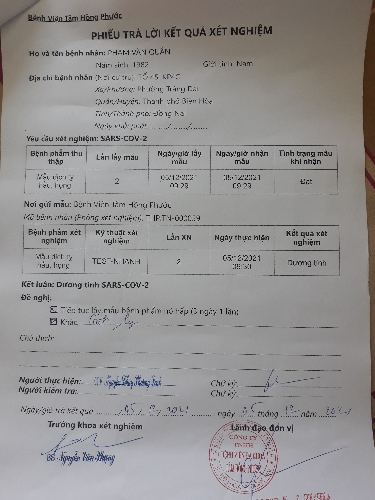 Bệnh Viện Tâm Hồng Phước
PHIẾU TRẢ LỜI KẾT QUẢ XÉT NGHIỆM
Họ và tên bệnh nhân: PHẠM VĂN QUÂN
Năm sinh: 1982 Giới tính: Nam
Địa chỉ bệnh nhân (Nơi cư trú): TỔ 45, KP4C
Xã/Phường: Phường Trảng Dài
Quận/Huyện: Thành phố Biên Hòa
Tỉnh/Thành phố: Đồng Nai
Ngày xuất phát: ......./......./.......
Yêu cầu xét nghiệm: SARS-COV-2
Bệnh phẩm thu thập Lần lấy mẫu Ngày/giờ lấy mẫu Ngày/giờ nhận mẫu Tình trạng mẫu khi nhận
Mẫu dịch tỵ hầu, họng 2 05/12/2021 09:29 05/12/2021 09:29 Đạt
Nơi gửi mẫu: Bệnh Viện Tâm Hồng Phước
Mã bệnh nhân (Phòng xét nghiệm):
Bệnh phẩm xét nghiệm Kỹ thuật xét nghiệm Lần XN Ngày thực hiện Kết quả xét nghiệm
Mẫu dịch tỵ hầu, họng TEST NHANH 2 05/12/2021 09:30 Dương tính
Kết luận: Dương tính SARS-COV-2
Đề nghị:
Tiếp tục lấy mẫu bệnh phẩm hô hấp (3 ngày 1 lần)
Khác:
Ghi chú:
Người thực hiện: Chữ ký:
Người kiểm tra: Chữ ký:
Ngày/giờ trả kết quả ngày 05 tháng 12 năm 2021
Trưởng khoa xét nghiệm Lãnh đạo đơn vị
CÔNG TY
TNHH